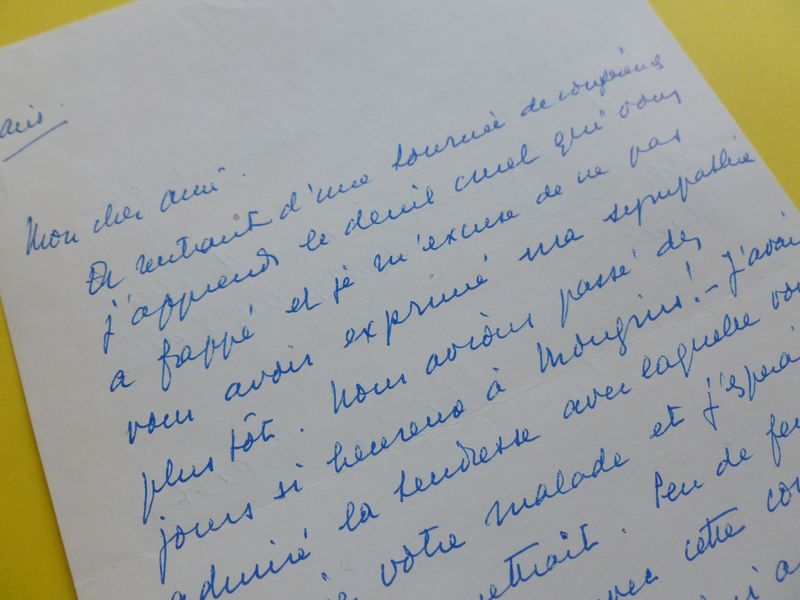 Mon cher ami.
En rentrant d'une tournée de
j'apprends le deuil cruel qui vous
a frappé et je m'excuse de ne pas
vous avoir exprimé ma sympathie
plus tôt. Nous avions passé des
jours si heureux à Mougins! - J'avai
admiré la tendresse avec laquelle vo
votre malade et j'espérai
Peu de fe
avec cette co